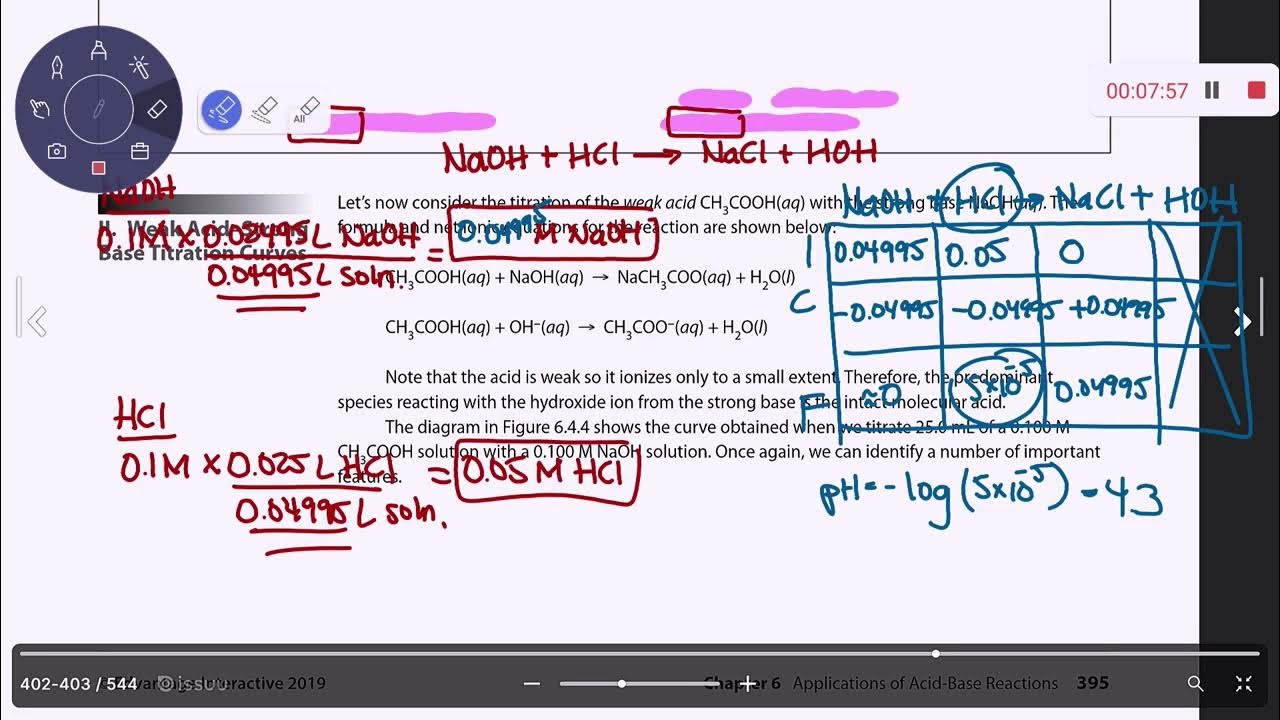 00:07:57
All
NaOH + HCl → NaCl + HOH
NaOH
II. Weak Acid–Strong
Base Titration Curves
0.1M × 0.02495 L NaOH = 0.04995 M NaOH
0.04995 L soln.
Let's now consider the titration of the weak acid CH₃COOH(aq) with the strong base NaOH(aq). The
formula and net ionic equations for the reaction are shown below:
CH₃COOH(aq) + NaOH(aq) → NaCH₃COO(aq) + H₂O(l)
CH₃COOH(aq) + OH⁻(aq) → CH₃COO⁻(aq) + H₂O(l)
NaOH + HCl → NaCl + HOH
I 0.04995 0.05 0
C -0.04995 -0.04995 +0.04995
F ≈0 5×10⁻⁵ 0.04995
Note that the acid is weak so it ionizes only to a small extent. Therefore, the predominant
species reacting with the hydroxide ion from the strong base is the intact molecular acid.
The diagram in Figure 6.4.4 shows the curve obtained when we titrate 25.0 mL of a 0.100 M
CH₃COOH solution with a 0.100 M NaOH solution. Once again, we can identify a number of important
features.
HCl
0.1M × 0.025 L HCl = 0.05 M HCl
0.04995 L soln.
pH = -log (5×10⁻⁵) = 4.3
402-403 / 544
Interactive 2019
issuu
Chapter 6 Applications of Acid-Base Reactions 395